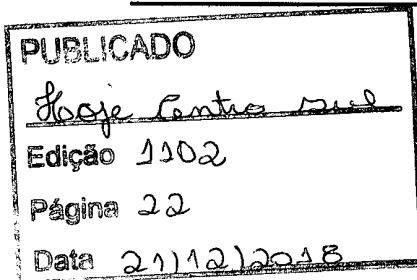 PUBLICADO
Hoje Centro Sul
Edição 1102
Página 22
Data 21/12/2018